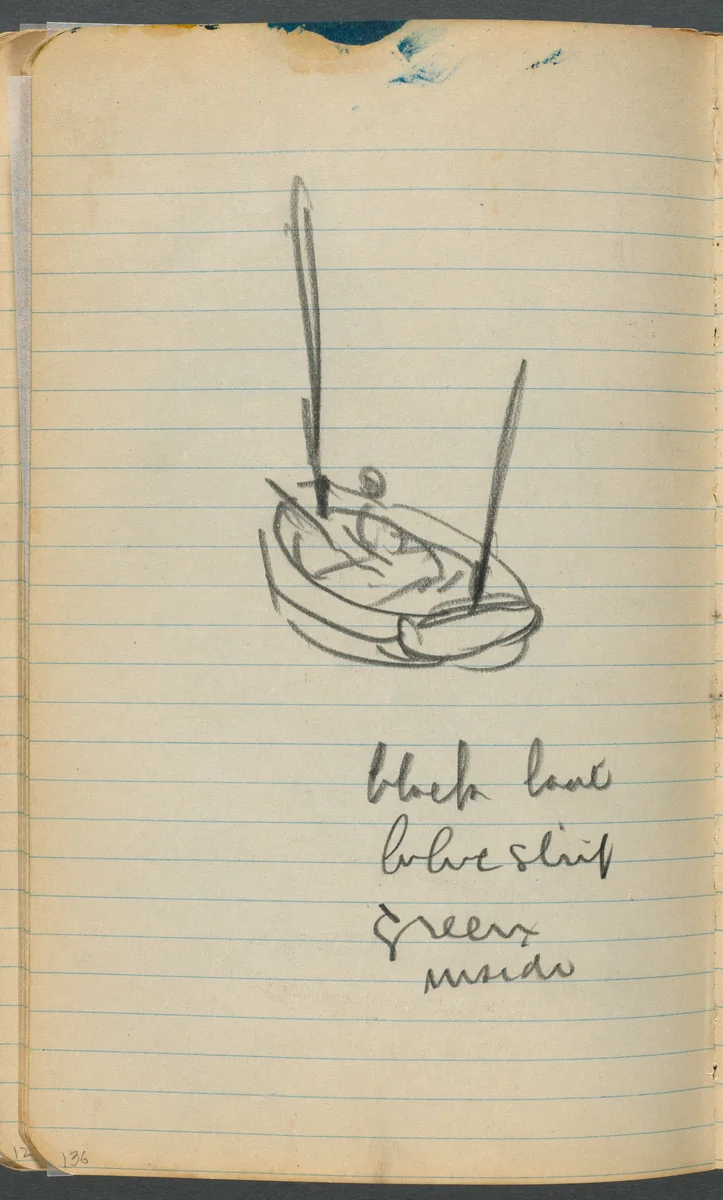 black boat
blue strip
green
inside
136
12